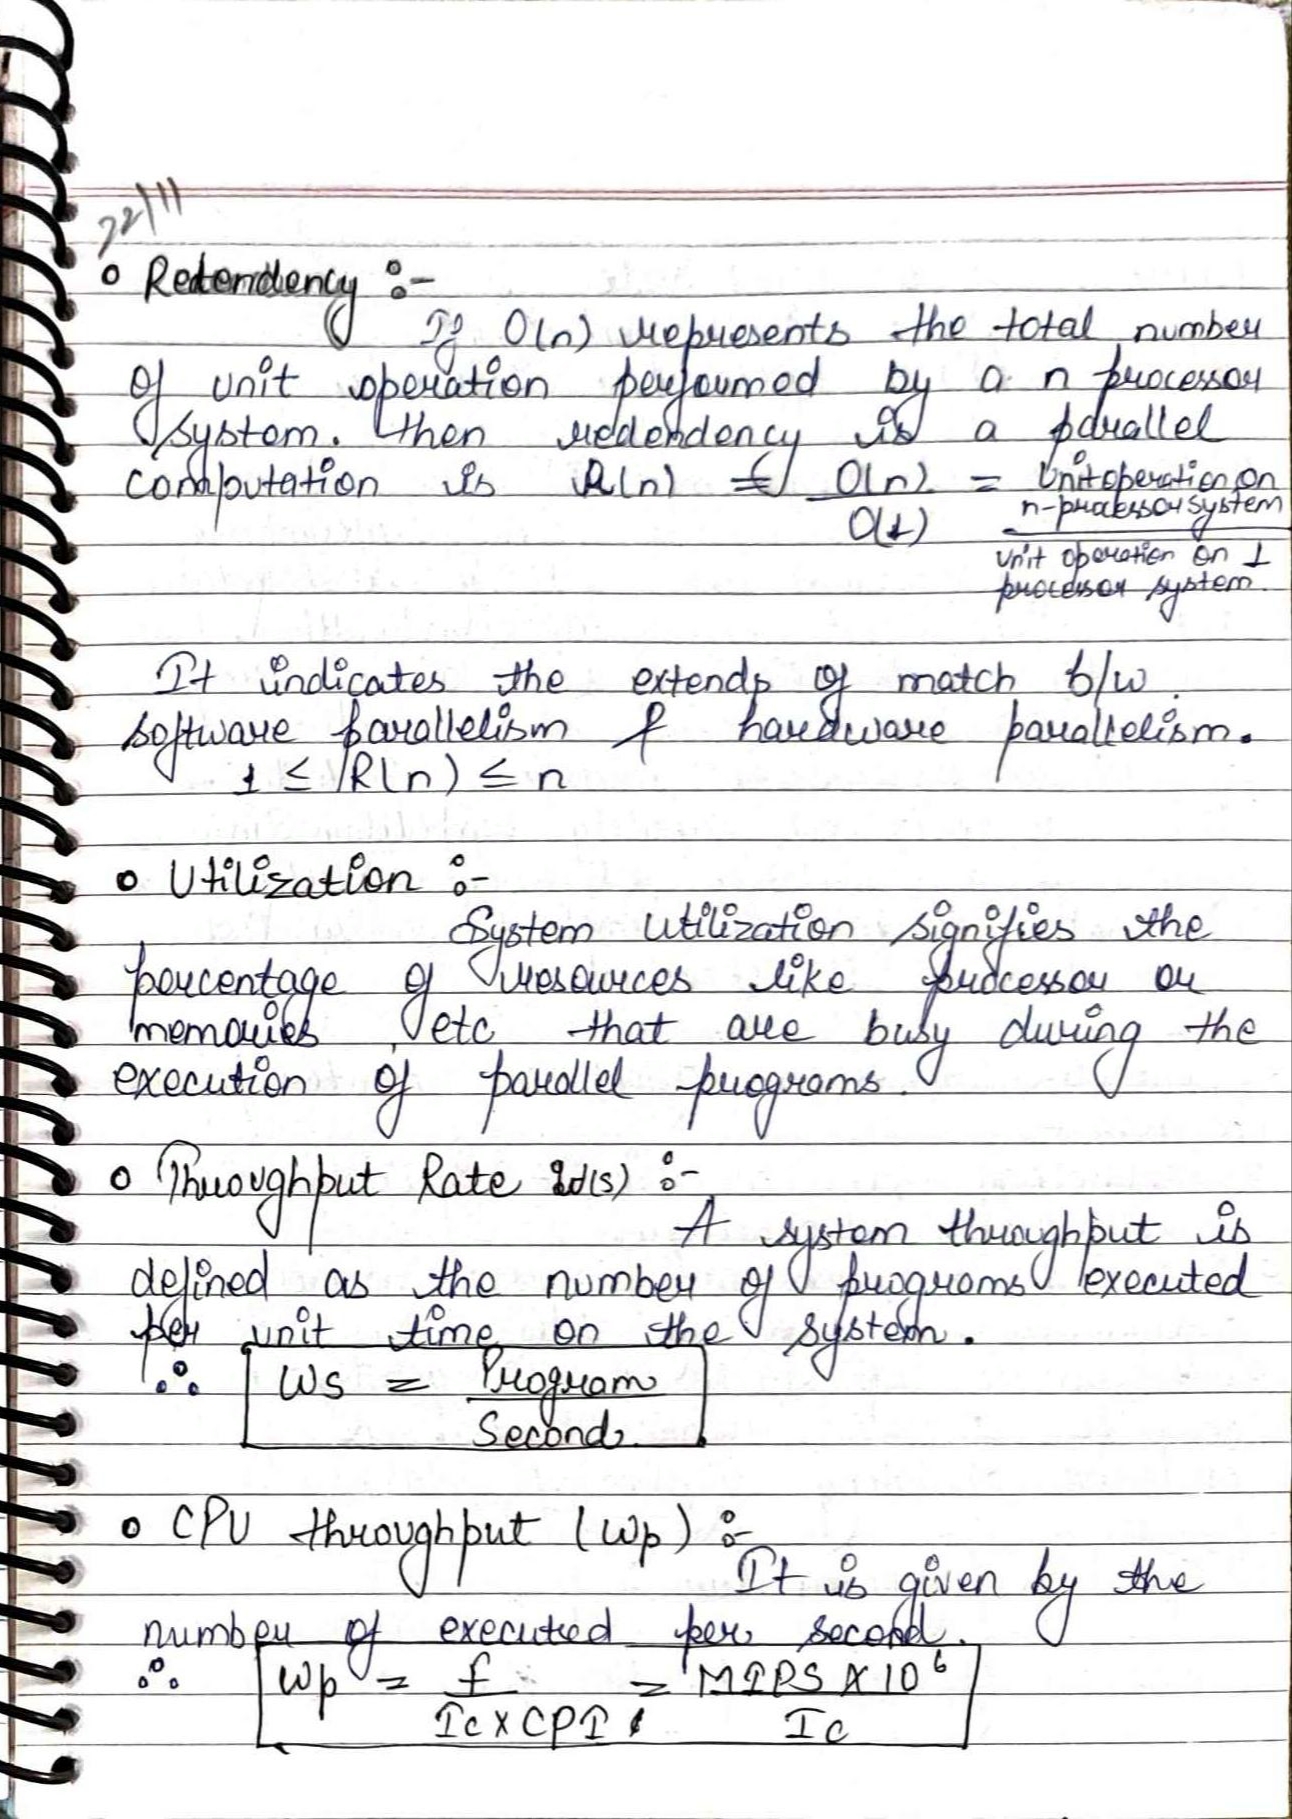 22/11
o Redendency :-
If O(n) represents the total number
of unit operation performed by a n processor
system. then redendency is a parallel
computation is R(n) = O(n) / O(1) = Unit operation on n-processor system / unit operation on 1 processor system.
It indicates the extends of match b/w
software parallelism & hardware parallelism.
1 ≤ R(n) ≤ n
o Utilization :-
System utilization signifies the
percentage of resources like processor or
memories etc that are busy during the
execution of parallel programs.
o Throughput Rate (s) :-
A system throughput is
defined as the number of programs executed
per unit time on the system.
∴ Ws = Program / Second
o CPU throughput (Wp) :-
It is given by the
number of executed per second.
∴ Wp = f / Ic x CPI = MIPS x 10^6 / Ic